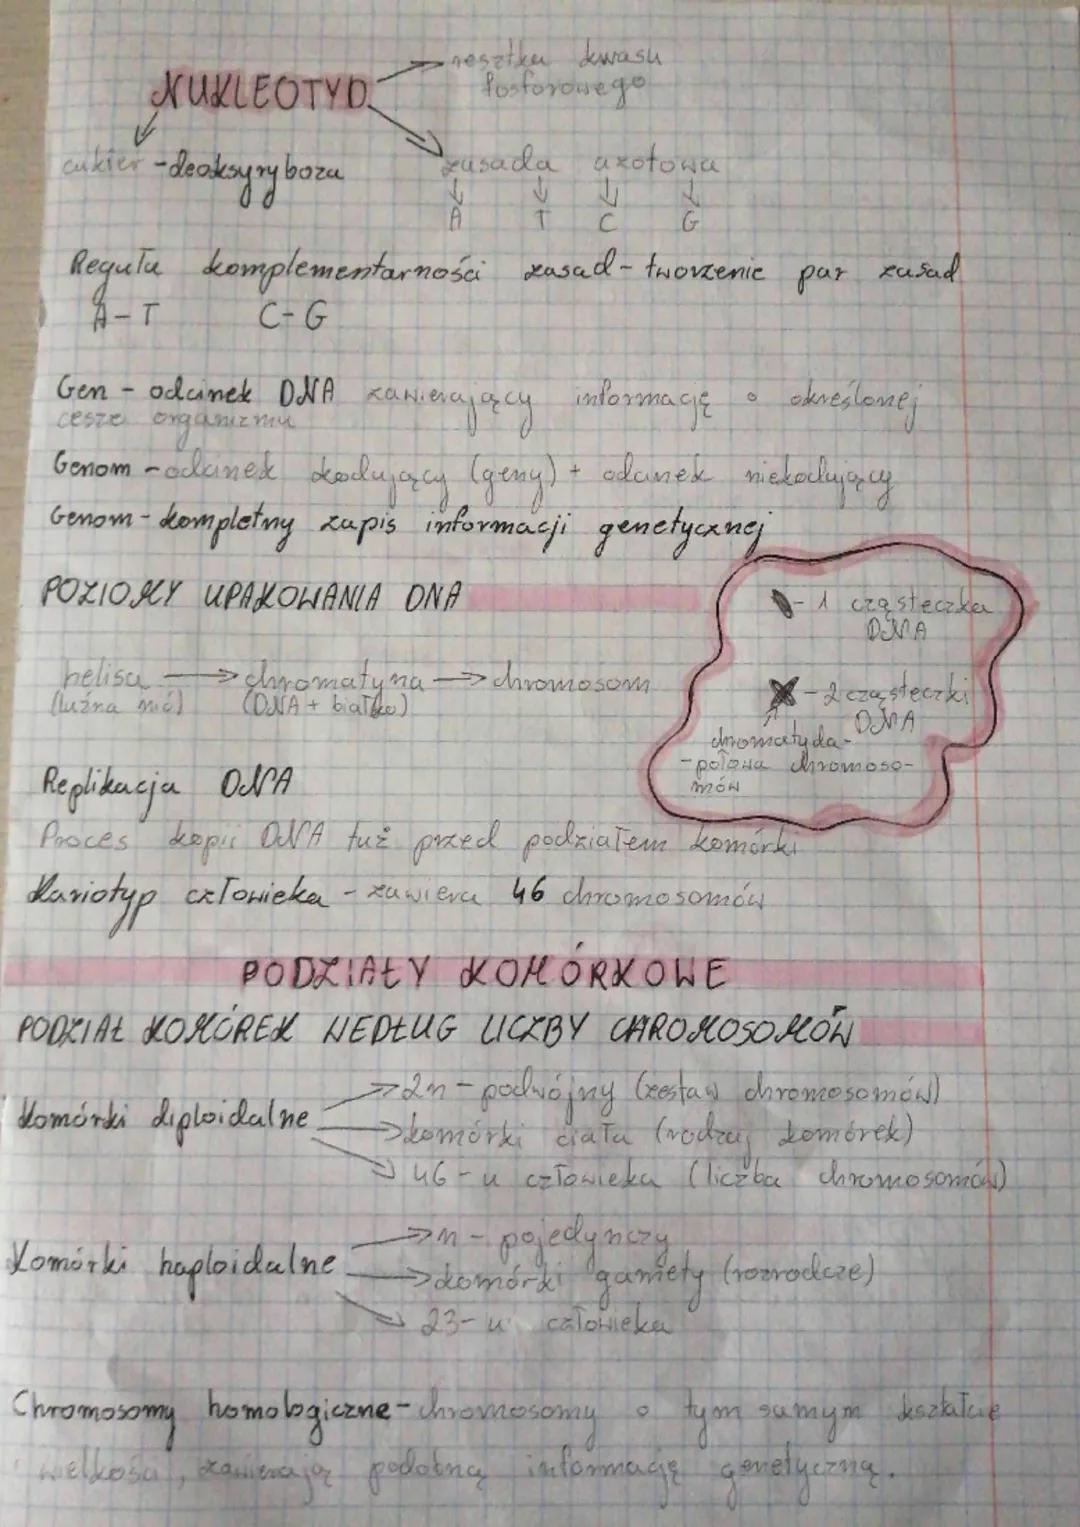 resztka kwasu
fosforowego
NUKLEOTYD
cukier - deoksyryboza
zasada azotowa
A T C G
Reguła komplementarności zasad - tworzenie par zasad
A-T C-G
Gen - odcinek DNA zawierający informację o określonej
cesze organizmu
Genom - odcinek kodujący (geny) + odcinek niekodujący
Genom - kompletny zapis informacji genetycznej
POZIOMY UPAKOWANIA DNA
- 1 cząsteczka
DNA
helisa → chromatyna → chromosom
(luźna nić) (DNA + białko)
- 2 cząsteczki
DNA
chromatyda -
- połowa chromoso-
mów
Replikacja DNA
Proces kopii DNA tuż przed podziałem komórki
Kariotyp człowieka - zawiera 46 chromosomów
PODZIAŁY KOMÓRKOWE
PODZIAŁ KOMÓREK WEDŁUG LICZBY CHROMOSOMÓW
Komórki diploidalne
→ 2n - podwójny (zestaw chromosomów)
→ komórki ciała (rodzaj komórek)
→ 46 - u człowieka (liczba chromosomów)
Komórki haploidalne
→ n - pojedynczy
→ komórki gamety (rozrodcze)
→ 23 - u człowieka
Chromosomy homologiczne - chromosomy o tym samym kształcie
i wielkości, zawierają podobną informację genetyczną.